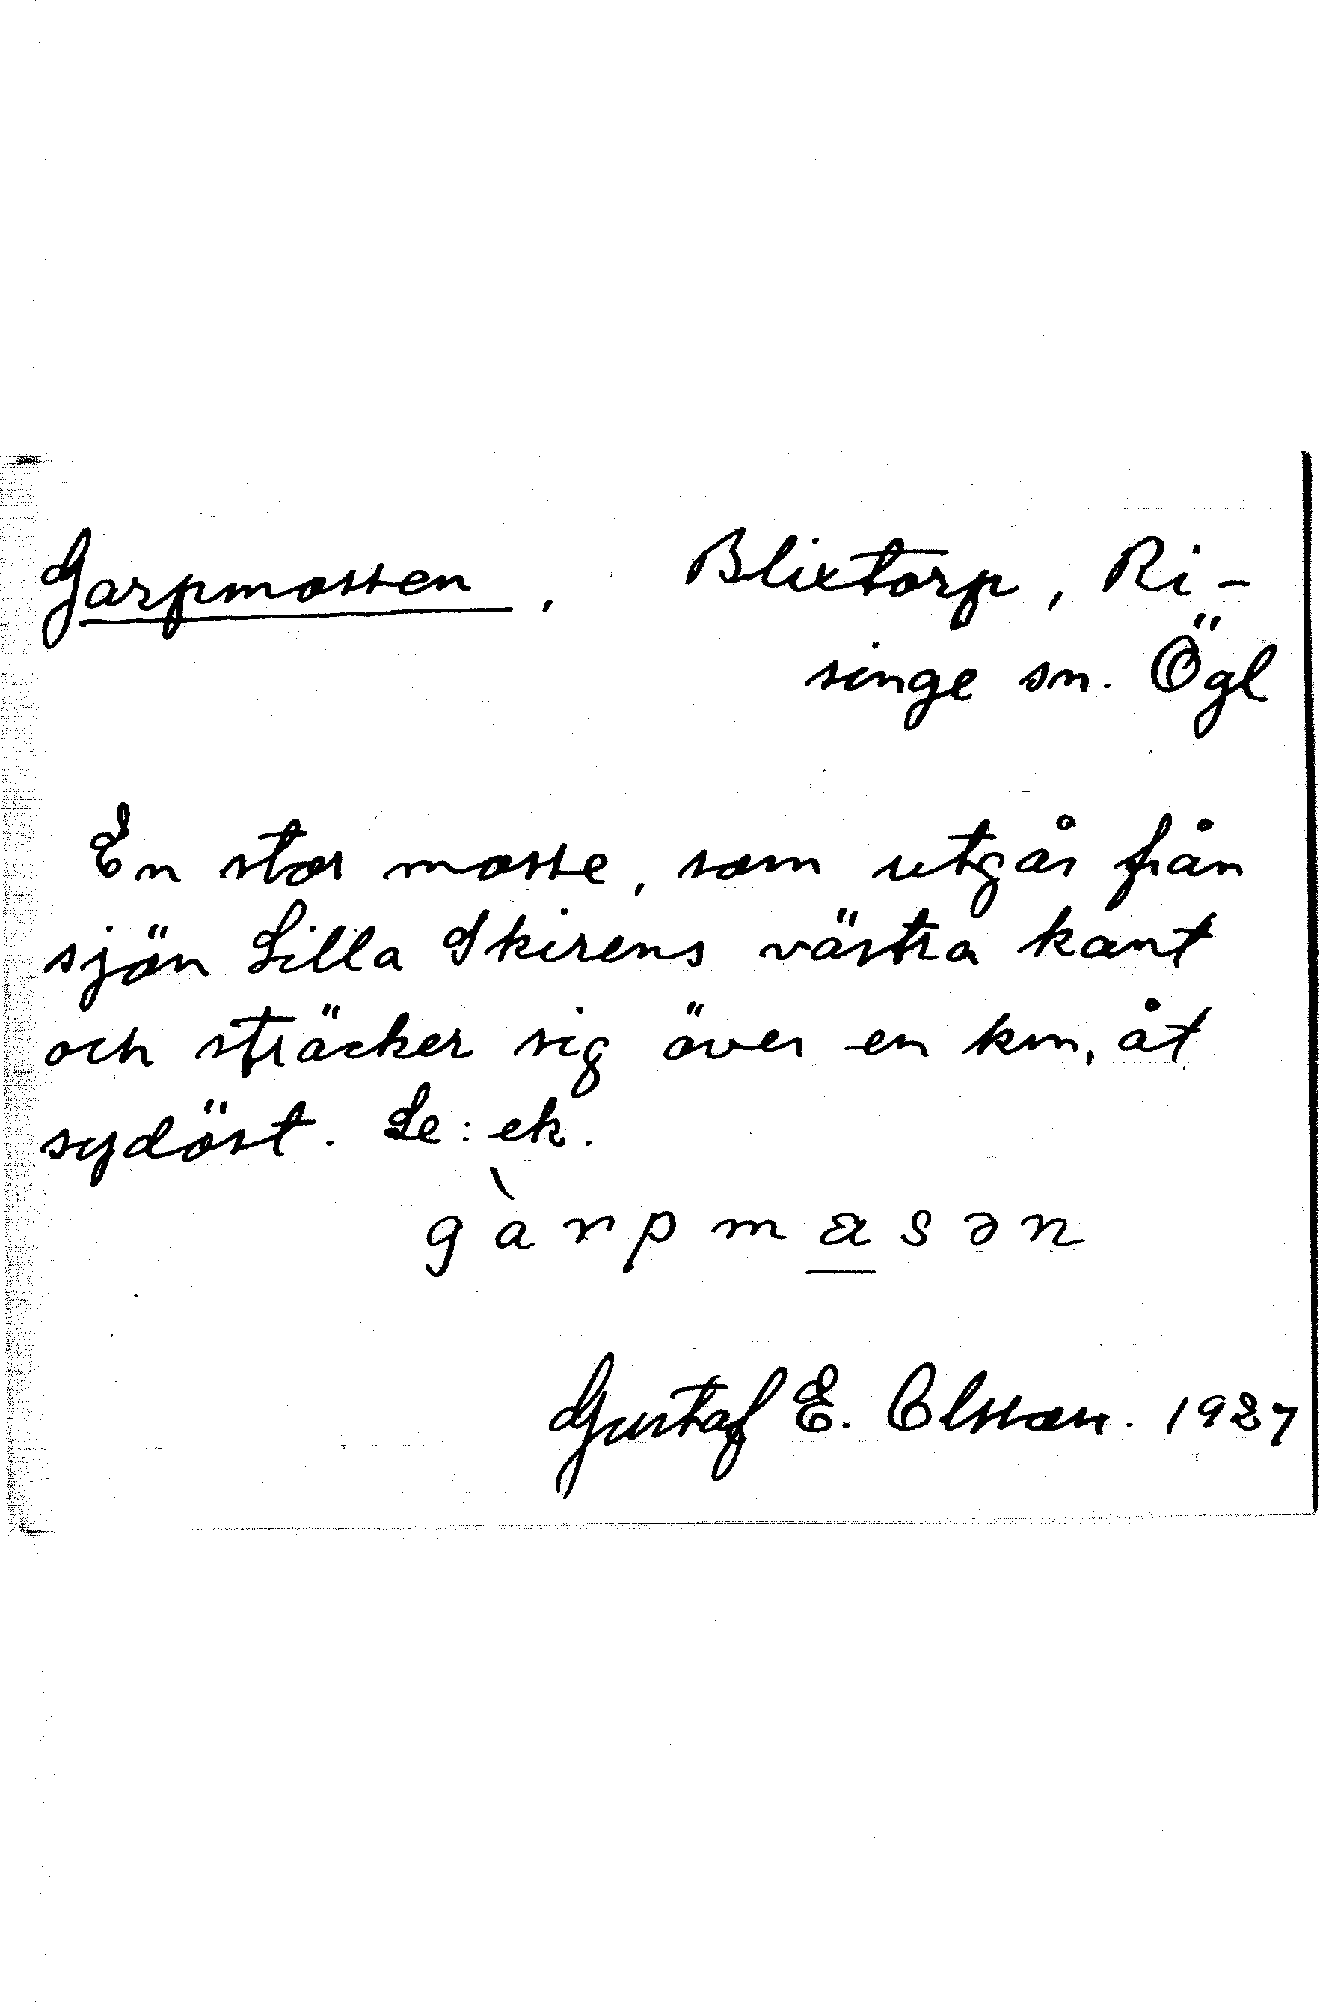 Garpmossen, Blixtorp, Ri-
singe sn. Ögl
En stor mosse, som utgår från
sjön Lilla Skirens västra kant
och sträcker sig över en km, åt
sydöst. Se: ek.
gàrpmasən
Gustaf E. Olsson. 1927